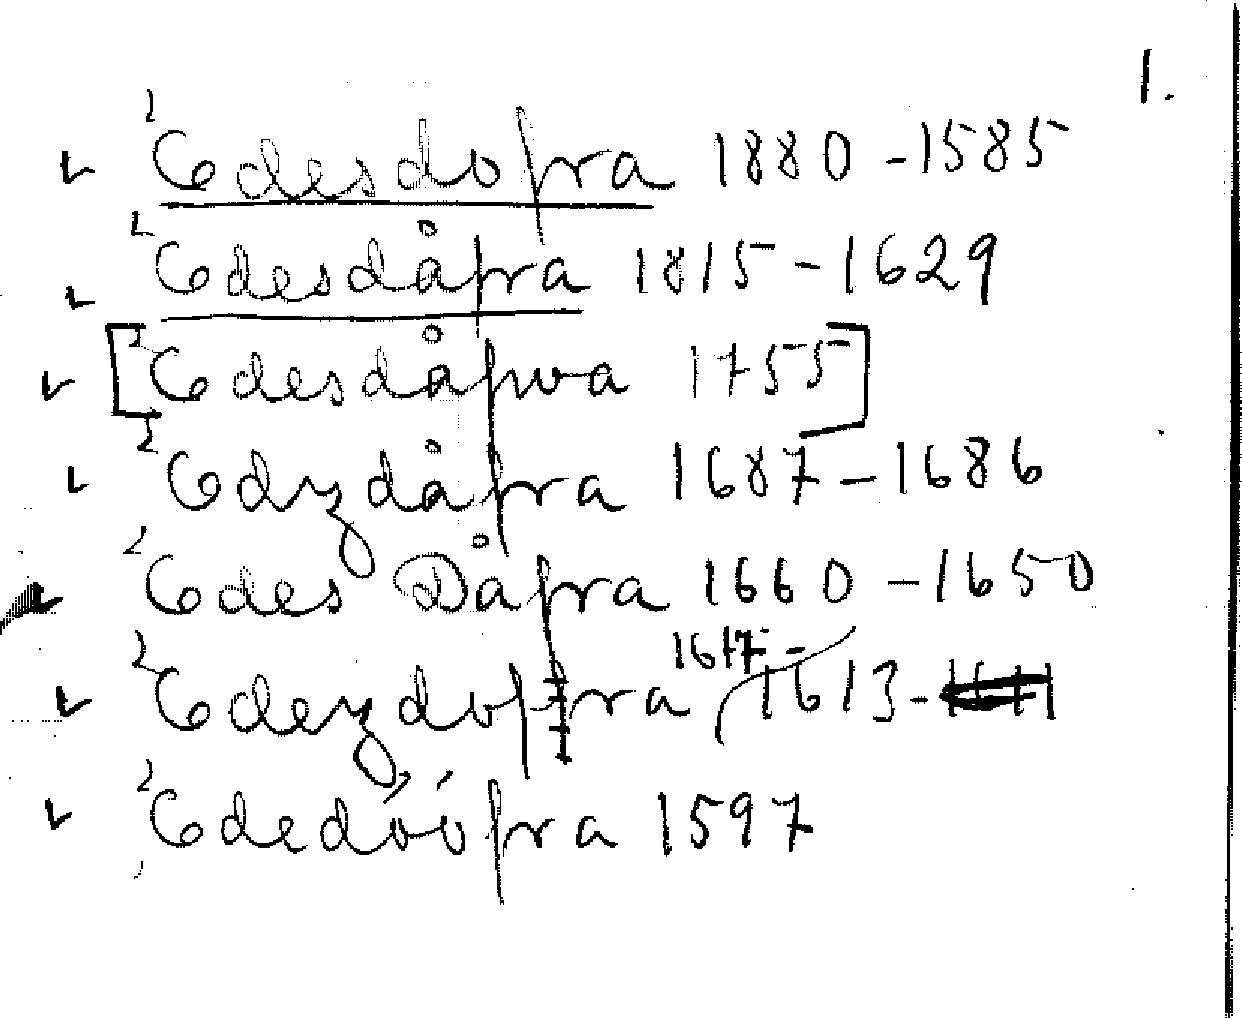 1.
Edesdofra 1880-1585
Edesdåfra 1815-1629
[Edesdåfwa 1755]
Edyzdåfra 1687-1686
Edes Dåfra 1660-1650
Edezdoffra 1617-1613-
Ededóófra 1597